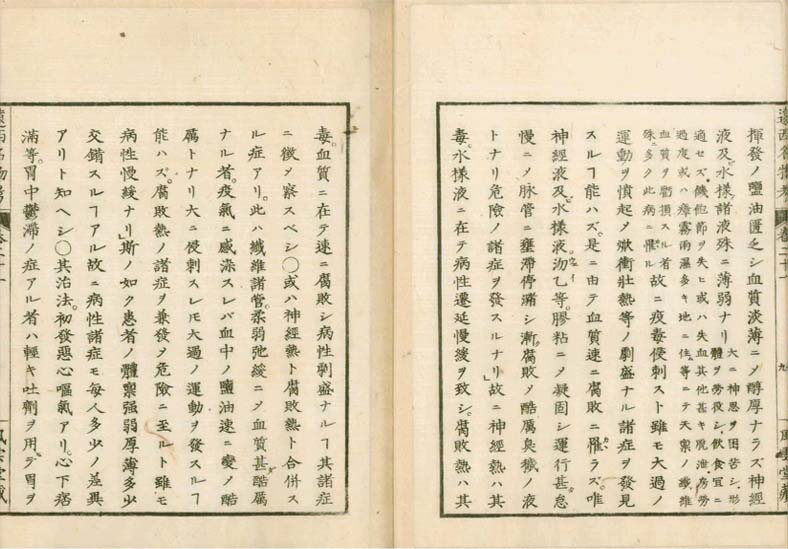 揮發ノ鹽油匱乏シ血質淡薄ニメ醇厚ナラズ神經
液及ビ水樣諸液殊ニ薄弱ナリ大ニ神思ヲ困苦シ、形
體ヲ勞役シ、飲食宜ニ
適セズ、饑飽節ヲ失ヒ或ハ失血其他甚キ脱泄、房勞
過度或ハ瘴霧雨濕多キ地ニ住等ニテ天稟ノ纖維
血質ヲ虧損スル者
殊ニ多ク此病ニ罹ル故ニ疫毒侵刺スト雖モ大過ノ
運動ヲ憤起ヲ焮衝壯熱等ノ劇盛ナル諸症ヲ發見
スルヿ能ハズ。是ニ由テ血質速ニ腐敗ニ罹ラズ。唯
神經液及ビ水樣液、沕乙等。膠粘ニメ凝固シ運行甚怠
慢ニメ脉管ニ壅滯停瀦シ漸ク腐敗メ酷厲臭穢ノ液
トナリ危險ノ諸症ヲ發スルナリ」故ニ神經熱ハ其
毒。水樣液ニ在テ病性遷延慢緩ヲ致シ。腐敗熱ハ其
遠西名物考
卷二十
九
風雲堂藏
毒。血質ニ在テ速ニ腐敗シ病性劇盛ナルヿ其諸症
ニ徴メ察スベシ〇或ハ神經熱ト腐敗熱ト合併ス
ル症アリ。此ハ纖維諸管柔弱弛緩ニメ血質甚酷厲
ナル者。疫氣ニ感染スレバ血中ノ鹽油速ニ變メ酷
厲トナリ大ニ侵刺スレモ大過ノ運動ヲ發スルヿ
能ハズ。腐敗熱ノ諸症ヲ兼發ヲ危險ニ至ルト雖モ
病性慢緩ナリ」斯ノ如ク患者ノ體稟强弱厚薄多少
交錯スルヿアル故ニ病性諸症モ毎人多少ノ差異
アリト知ヘシ〇其治法。初發惡心嘔氣アリ。心下痞
滿等。胃中鬱滯ノ症アル者ハ輕キ吐劑ヲ用テ胃ヲ
遠西名物考
卷二十
風雲堂藏